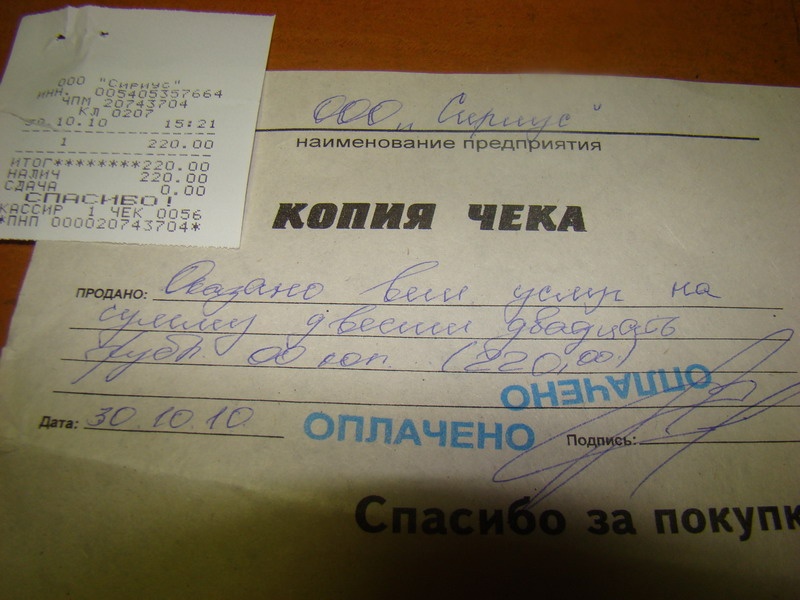 ООО "Сириус"
ИНН. 005405357664
ЧПМ 20743704
КЛ 0207
30.10.10 15:21
1 220.00
ИТОГ********220.00
НАЛИЧ 220.00
СДАЧА 0.00
СПАСИБО!
КАССИР 1 ЧЕК 0056
*ПНП 000020743704*
ООО „Сириус"
наименование предприятия
КОПИЯ ЧЕКА
ПРОДАНО: Оказано вет. услуг на
сумму двести двадцать
руб. 00 коп. (220,00)
ОПЛАЧЕНО
Дата: 30.10.10.
ОПЛАЧЕНО
Подпись:
Спасибо за покупк